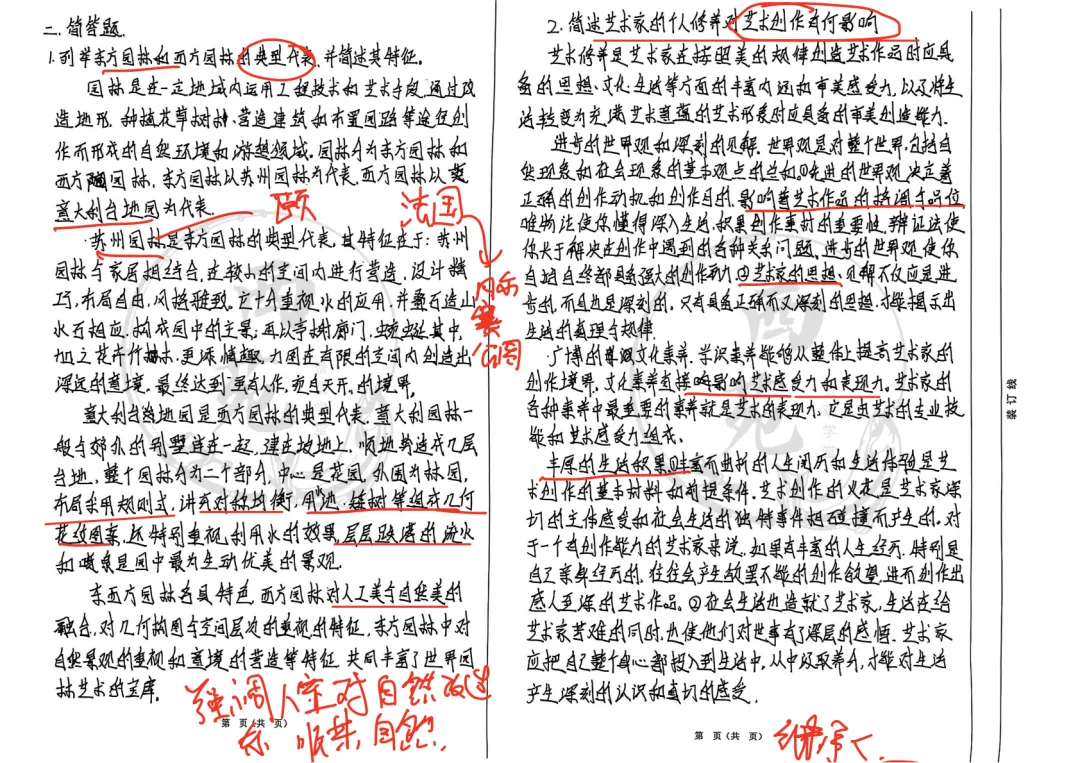 二. 简答题.
1. 列举东方园林和西方园林的典型代表, 并简述其特征。
园林是在一定地域内运用工程技术和艺术手段, 通过改
造地形, 种植花草树林, 营造建筑和布置园路等途径创
作而形成的自然环境和游憩领域. 园林分为东方园林和
西方园林, 东方园林以苏州园林为代表, 西方园林以
意大利台地园为代表.
颐
法国
·苏州园林是东方园林的典型代表, 其特征在于: 苏州
园林与家居相结合, 在较小的空间内进行营造, 设计精
巧, 布局自由, 风格雅致. 它十分重视水的应用, 并叠石造山
水石相应, 构成园中的主景; 再以亭榭廊门, 蜿蜒其中,
加之花卉竹树木, 更添情趣, 力图在有限的空间内创造出
深远的意境, 最终达到虽由人作, 宛自天开, 的境界.
凡尔
赛
公园
意大利台地园是西方园林的典型代表. 意大利园林一
般与郊外的别墅连在一起, 建在坡地上, 顺地势造成几层
台地, 整个园林分三个部分, 中心是花园, 外围为林园,
布局采用规则式, 讲究对称均衡, 用水池、矮树等组成几何
花纹图案, 还特别重视利用水的效果, 层层跌落的流水
和喷泉是园中最为生动优美的景观.
东西方园林各具特色, 西方园林对人工美与自然美的
融合, 对几何构图与空间层次的重视的特征, 东方园林中对
自然景观的重视和意境的营造等特征, 共同丰富了世界园
林艺术的宝库.
强调人定对自然改造
东 顺其自然.
第 页(共 页)
2. 简述艺术家的个人修养对艺术创作有何影响
艺术修养是艺术家在按照美的规律创造艺术作品时应具
备的思想、文化、生活等方面的丰富内涵和审美感受力, 以及将生
活转变为充满艺术意蕴的艺术形象时应具备的审美创造能力.
·进步的世界观和深刻的见解. 世界观是对整个世界, 包括自
然现象和社会现象的基本观点的总和. ①先进的世界观决定着
正确的创作动机和创作目的, 影响着艺术作品的格调与品位
唯物论使你懂得深入生活, 积累创作素材的重要性, 辩证法使
你长于解决在创作中遇到的各种关系问题, 进步的世界观使你
自始自终都具备强大的创作动力. ②艺术家的思想、见解不仅应是进
步的, 而且也是深刻的, 只有具备正确而又深刻的思想, 才能揭示出
生活的真理与规律
·广博的学识文化素养. 学识素养能够从整体上提高艺术家的
创作境界, 文化素养直接影响艺术感受力和表现力. 艺术家的
各种素养中最重要的素养就是艺术的表现力, 它是由艺术的专业技
能和艺术感受力组成.
·丰厚的生活积累. ①丰富而曲折的人生阅历和生活体验是艺
术创作的基本材料和前提条件. 艺术创作的火花是艺术家深
切的主体感受和社会生活的独特事件相碰撞而产生的. 对
于一个有创作能力的艺术家来说, 如果有丰富的人生经历, 特别是
自己亲身经历的, 往往会产生欲罢不能的创作欲望, 进而创作出
感人至深的艺术作品. ②社会生活也造就了艺术家, 生活在给
艺术家苦难的同时, 也使他们对世事有了深层的感悟. 艺术家
应把自己整个身心都投入到生活中, 从中汲取养分, 才能对生活
产生深刻的认识和真切的感受.
第 页(共 页)
装订线